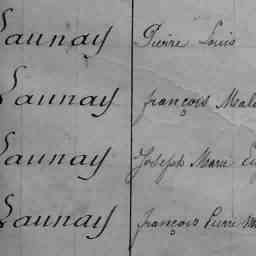 Launay Pierre Louis
Launay françois
Launay Joseph Marie
Launay françois Pierre